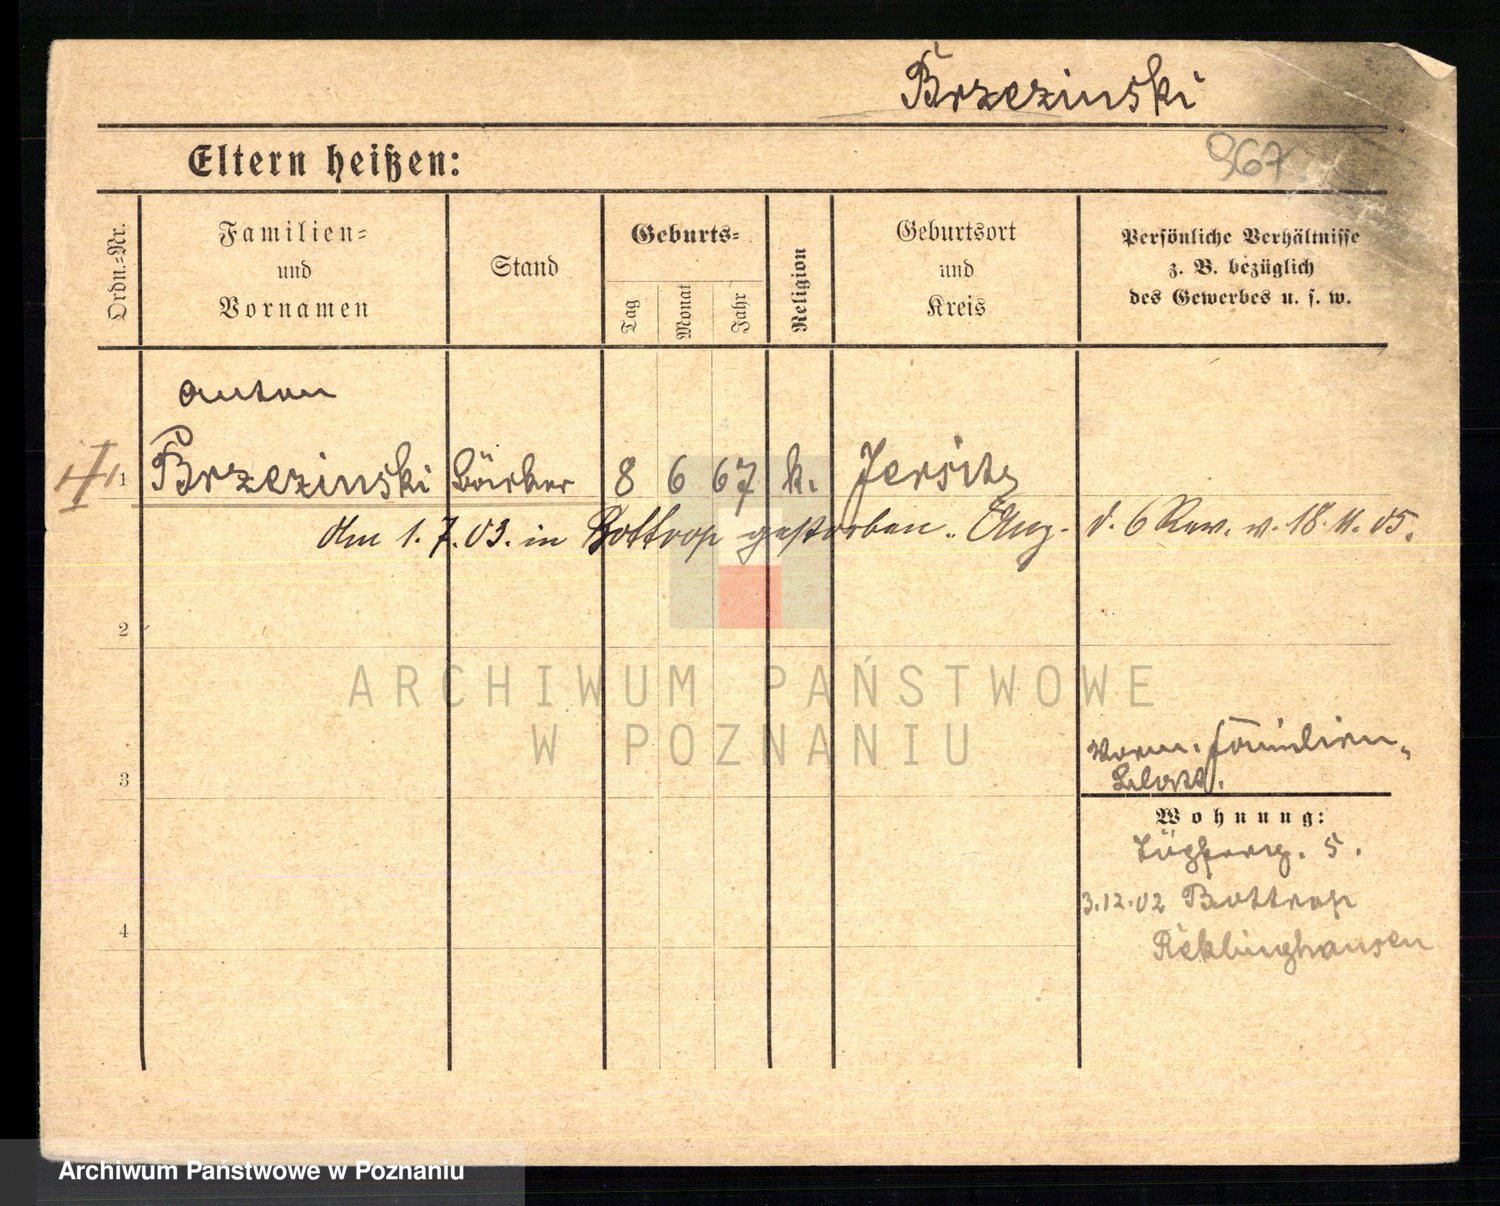 Brzezinski
Eltern heißen:
967
Ordn.-Nr.
Familien-
und
Vornamen
Stand
Geburts-
Tag
Monat
Jahr
Religion
Geburtsort
und
Kreis
Persönliche Verhältnisse
z. B. bezüglich
des Gewerbes u. s. w.
Anton
1 Brzezinski 8 6 67 k. Jersitz
Am 1.7.03. in Bottrop gestorben. Ang. d. 6 Rev. v. 18.11.05.
2
ARCHIWUM PAŃSTWOWE
W POZNANIU
3
Vorm. Familien-
Blatt.
Wohnung:
5.
4
3.12.02 Bottrop
Reklinghausen
Archiwum Państwowe w Poznaniu